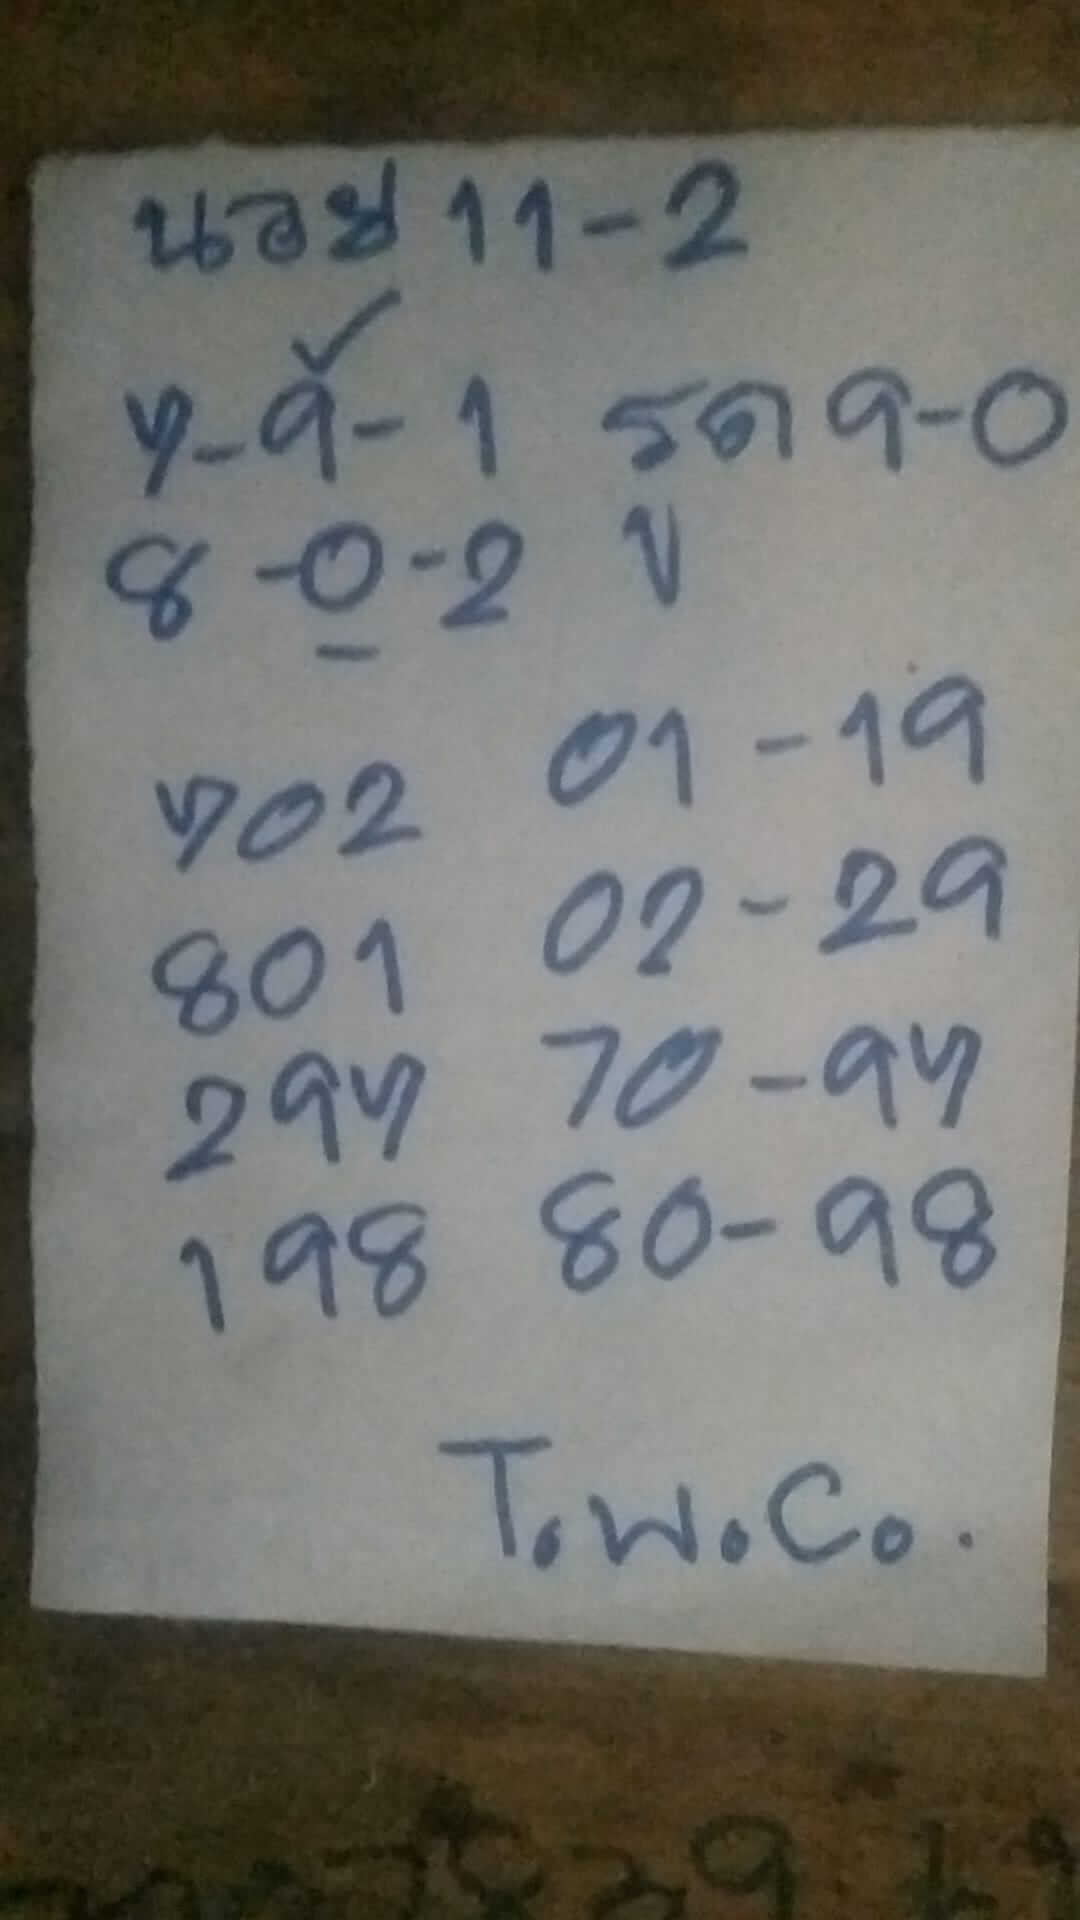 นอย 11-2
7-9-1 รูด 9-0
8-0-2
702 01-19
801 02-29
297 70-97
198 80-98
T.พ.C.